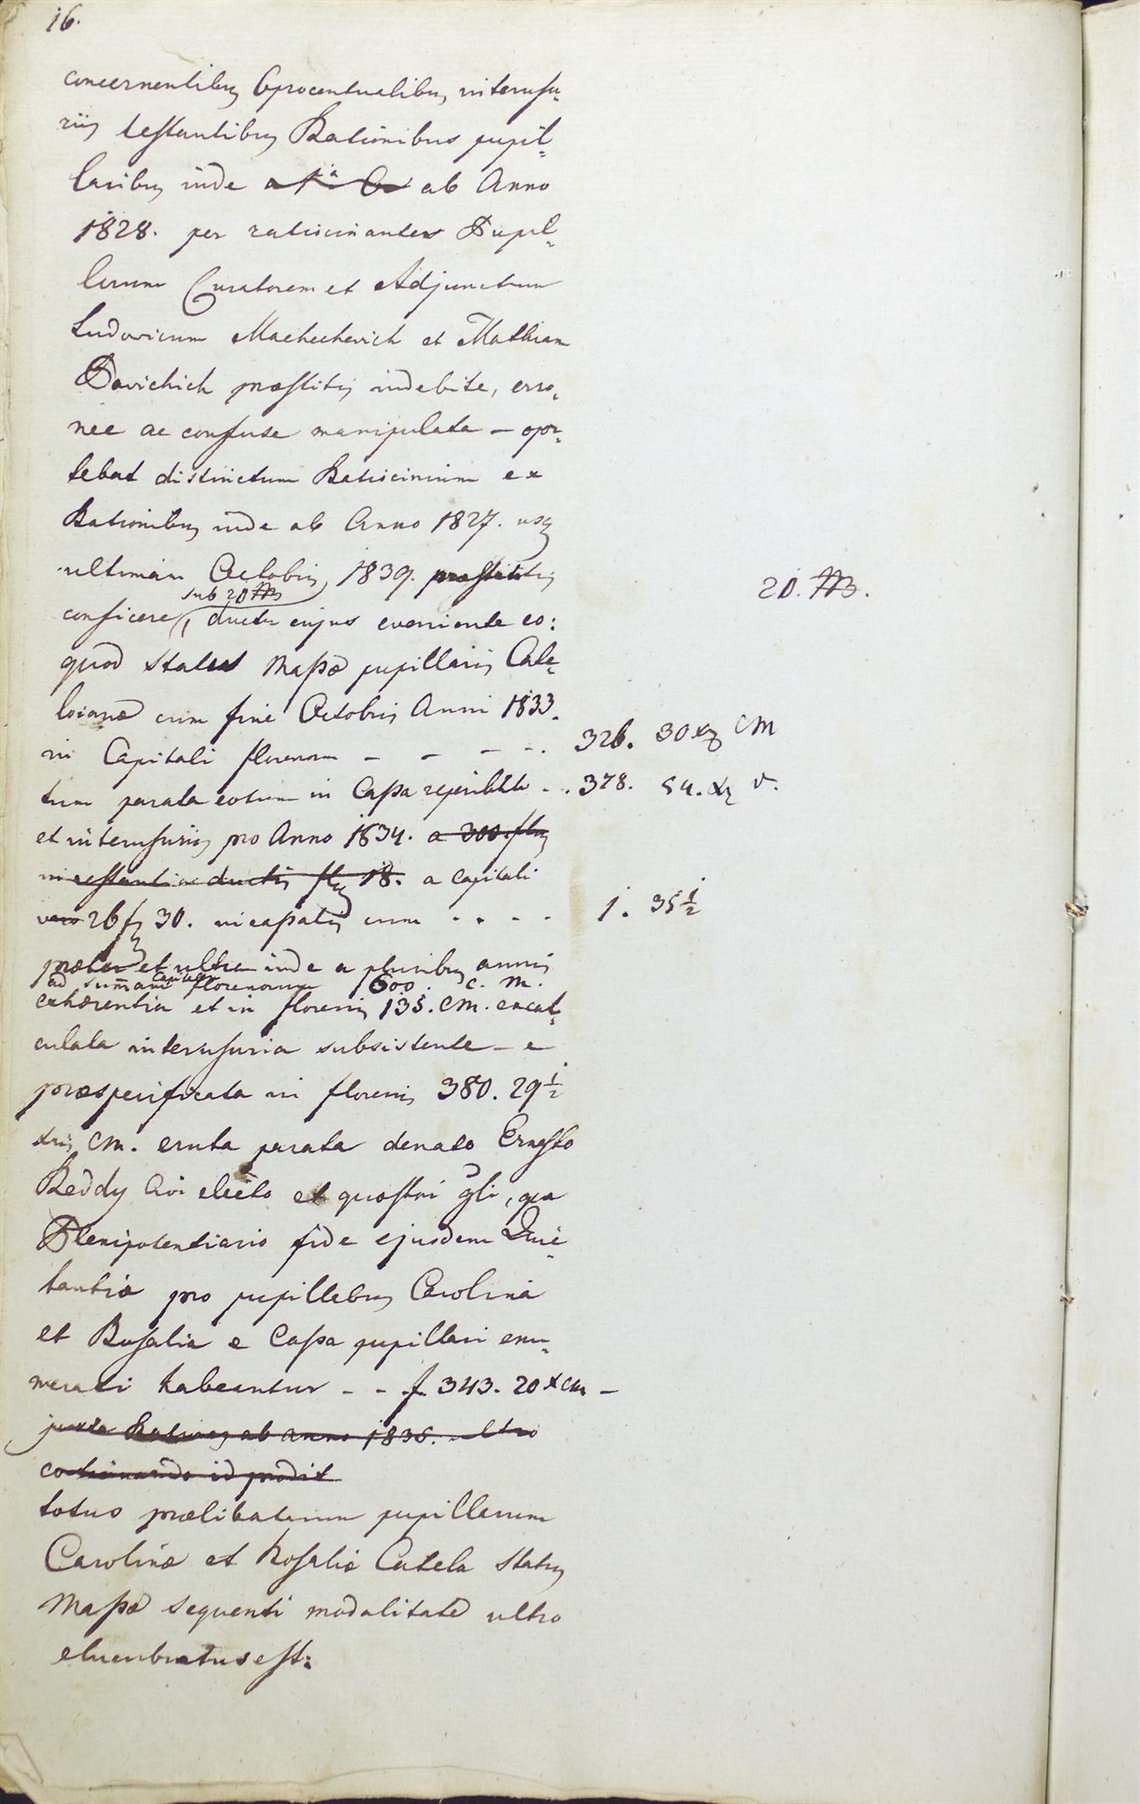 16.
concernentibus 6procentualibus, interusu-
riis testantibus Rationibus pupil-
laribus inde a 1a ab Anno
1828. per ratiocinantes Pupil-
lorum Curatorem et Adjunctum
Ludovicum Machechevich et Mathiam
Davichich præstitis indebite, erro-
nee ac confuse manipulata – opor-
tebat distinctum Ratiocinium ex
Rationibus inde ab Anno 1827. usq
ultimam Octobris 1839. præstitis
sub 20
conficere, ductu cujus eveniente eo:
20.
quod status Massæ pupillaris Cate-
loianæ cum fine Octobris Anni 1833.
in Capitali florenorum – – – – . 326. 30 xr CM
tum parata eotum in Cassa reperibili - . 378. 54. xr v.
et interusuriis pro Anno 1834. a 300. flnis
in restantiae ductis flnis 18. a capitali
vero 26 f 30. incassatis cum - - - - 1. 35 1/2
præter et ultra inde a pluribus annis
ad summam Capitalem florenorum 1600. C. M.
cohærentia et in florenis 135. CM. excal-
culata interusuria subsistente – e
præspecificata in florenis 380. 29 1/2
xris CM. eruta parata denato Ernesto
Reddy Avi electo et quæstori gli, qua
Plenipotentiario fide ejusdem Quie-
tantiæ pro pupillabus Carolina
et Rosalia e Cassa pupillari enu-
merati habeantur - - f 343. 20 x CM –
juxta Rationes ab anno 1835. ultro
continuando id prodit
totus prælibatarum pupillarum
Carolinæ et Rosaliæ Catela status
Massæ sequenti modalitate ultro
elucubratus est: